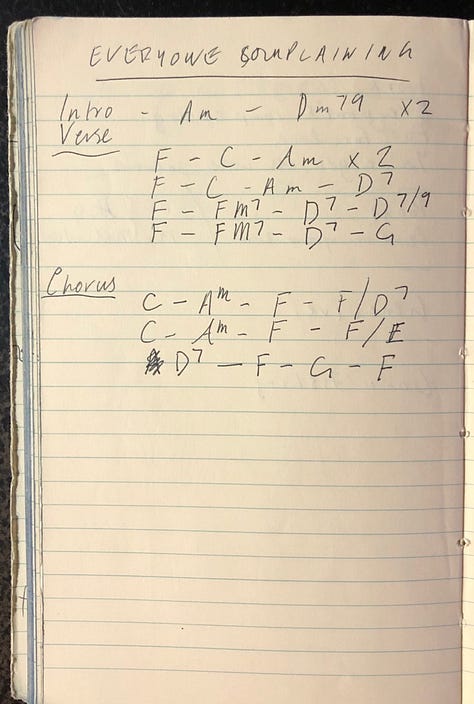 EVERYONE COMPLAINING
Intro - Am - Dm79 x2
Verse
F - C - Am x 2
F - C - Am - D7
F - Fm7 - D7 - D7/9
F - FM7 - D7 - G
Chorus
C - Am - F - F/D7
C - Am - F - F/E
D7 - F - G - F